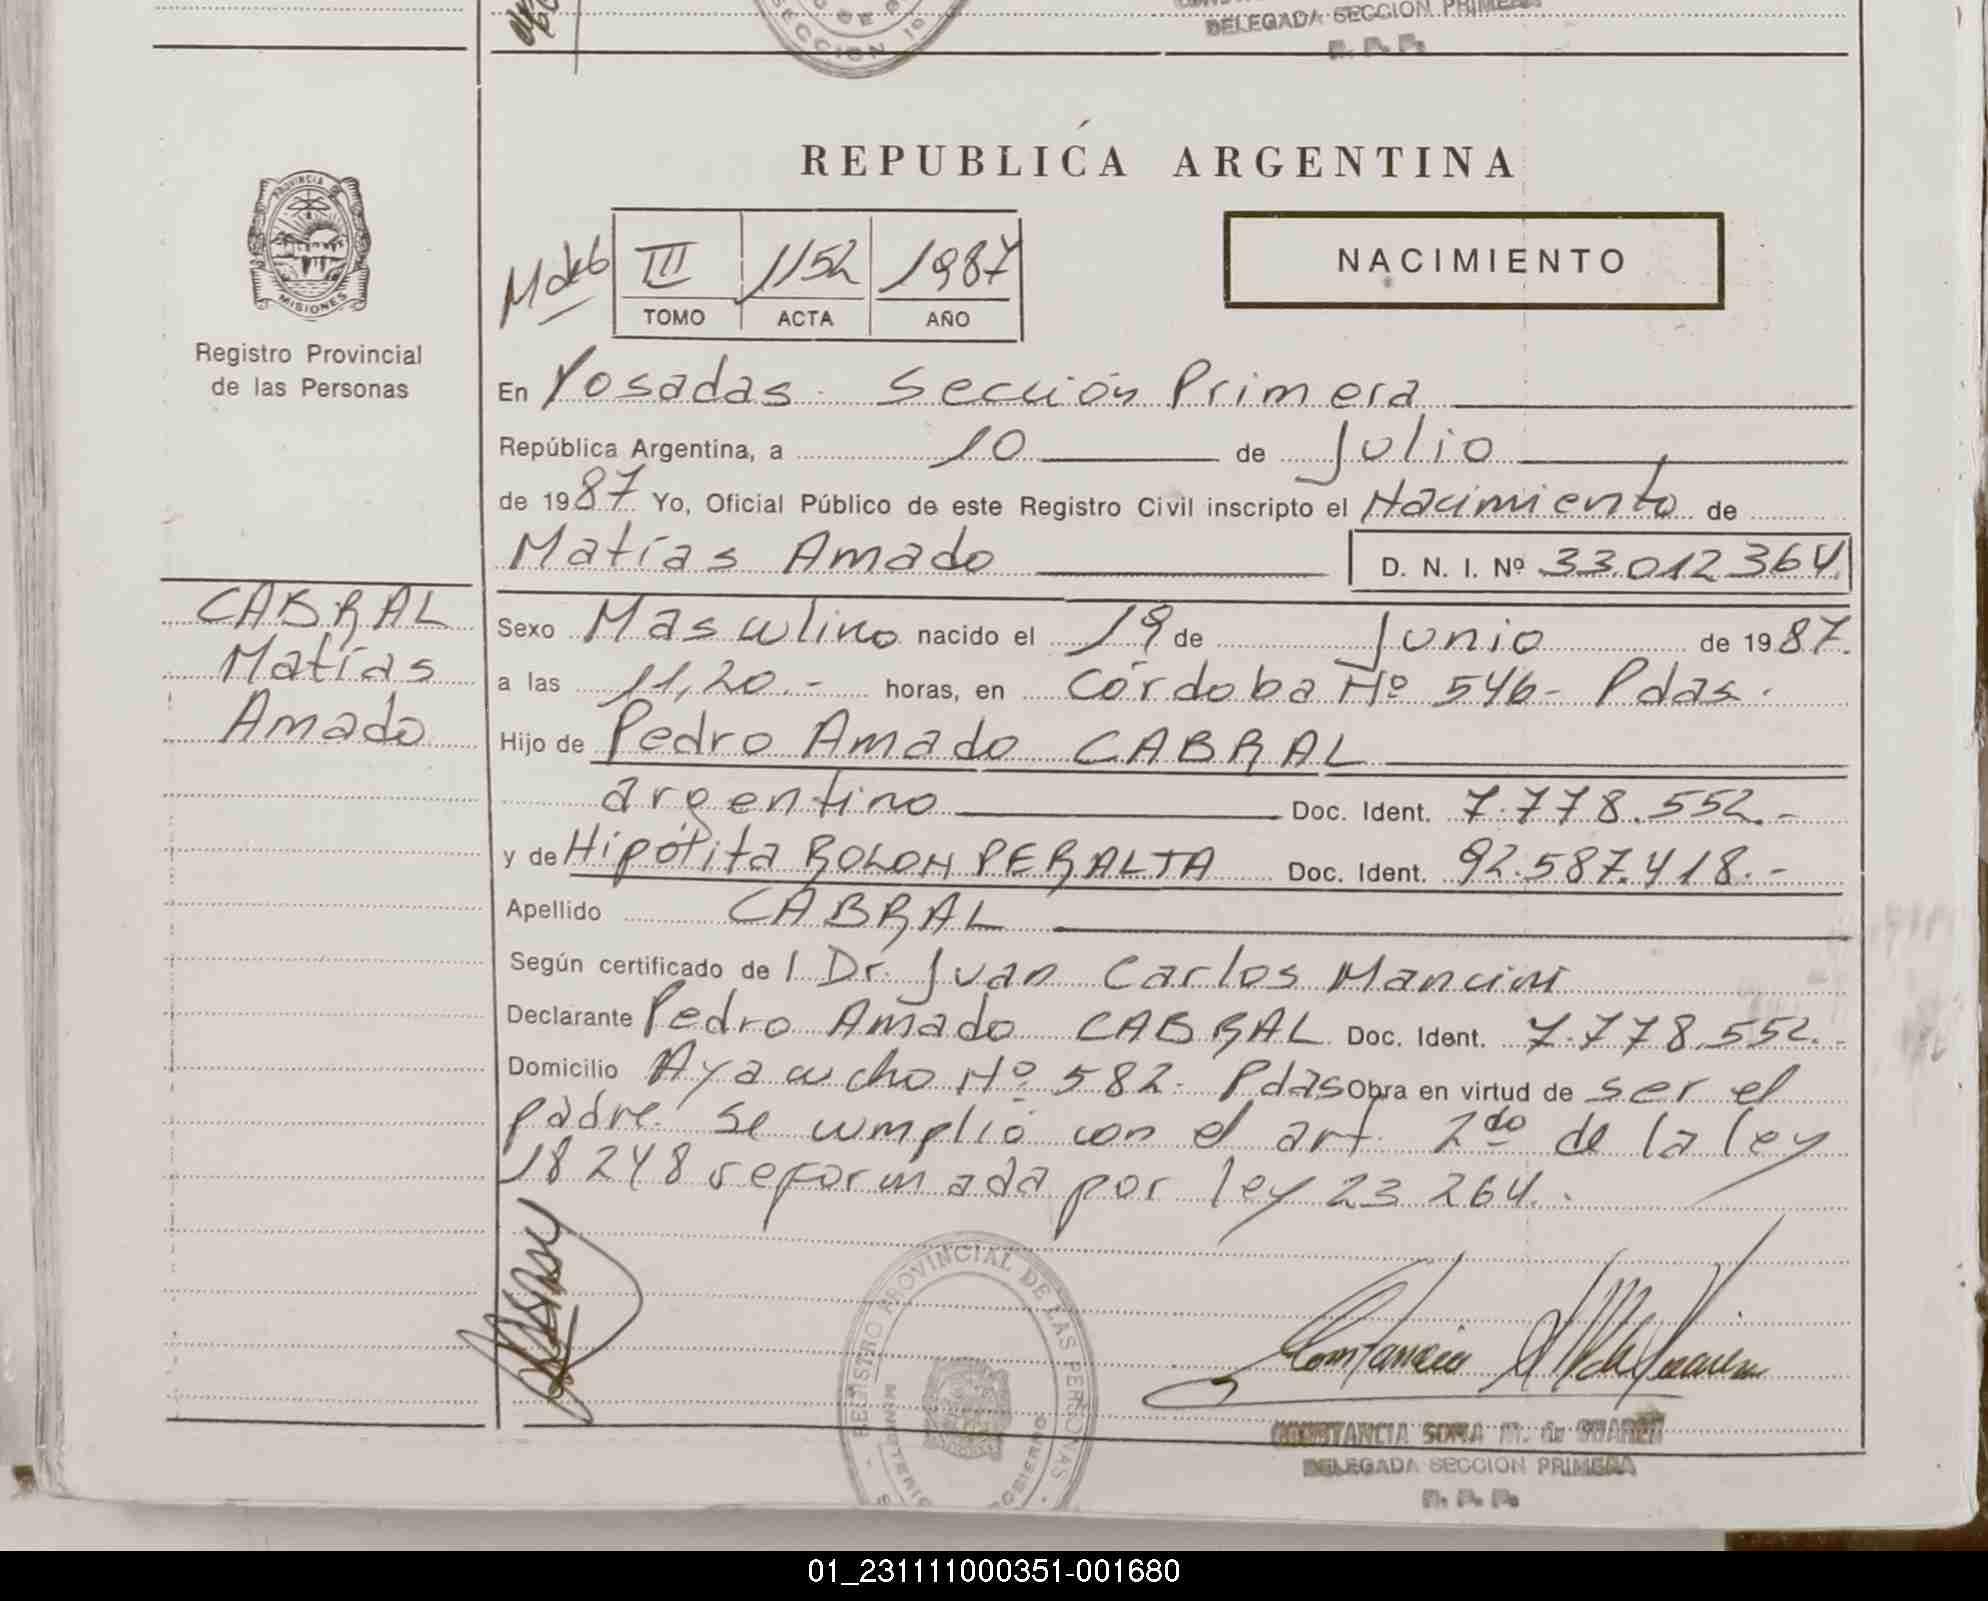 SECCION 1a
DELEGADA SECCION PRIMERA
R. P. P.
REPUBLICA ARGENTINA
PROVINCIA DE
MISIONES
Registro Provincial
de las Personas
III 1152 1987
TOMO ACTA AÑO
NACIMIENTO
En Posadas. Sección Primera
República Argentina, a 10 de Julio
de 1987 Yo, Oficial Público de este Registro Civil inscripto el Nacimiento de
Matías Amado D. N. I. Nº 33.012.364.
CABRAL
Matías
Amado
Sexo Masculino nacido el 19 de Junio de 1987.
a las 11,20.- horas, en Córdoba Nº 546- Pdas.
Hijo de Pedro Amado CABRAL
argentino Doc. Ident. 7.778.552.-
y de Hipólita ROLON PERALTA Doc. Ident. 92.587.418.-
Apellido CABRAL
Según certificado de l Dr. Juan Carlos Mancini
Declarante Pedro Amado CABRAL Doc. Ident. 7.778.552.-
Domicilio Ayacucho Nº 582- Pdas Obra en virtud de ser el
padre. Se cumplió con el art. 2do de la ley
18248 reformada por ley 23 264.
REGISTRO PROVINCIAL DE LAS PERSONAS
MINISTERIO GOBIERNO
CONSTANCIA SOSA M. de SUAREZ
DELEGADA SECCION PRIMERA
R. P. P.
01_231111000351-001680